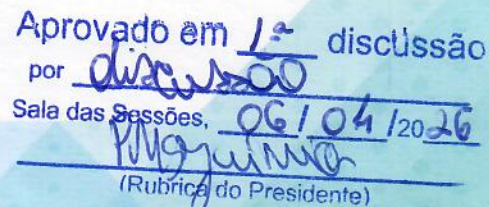 Aprovado em 1ª discussão
por discussão
Sala das Sessões, 06/04/2026
(Rubrica do Presidente)